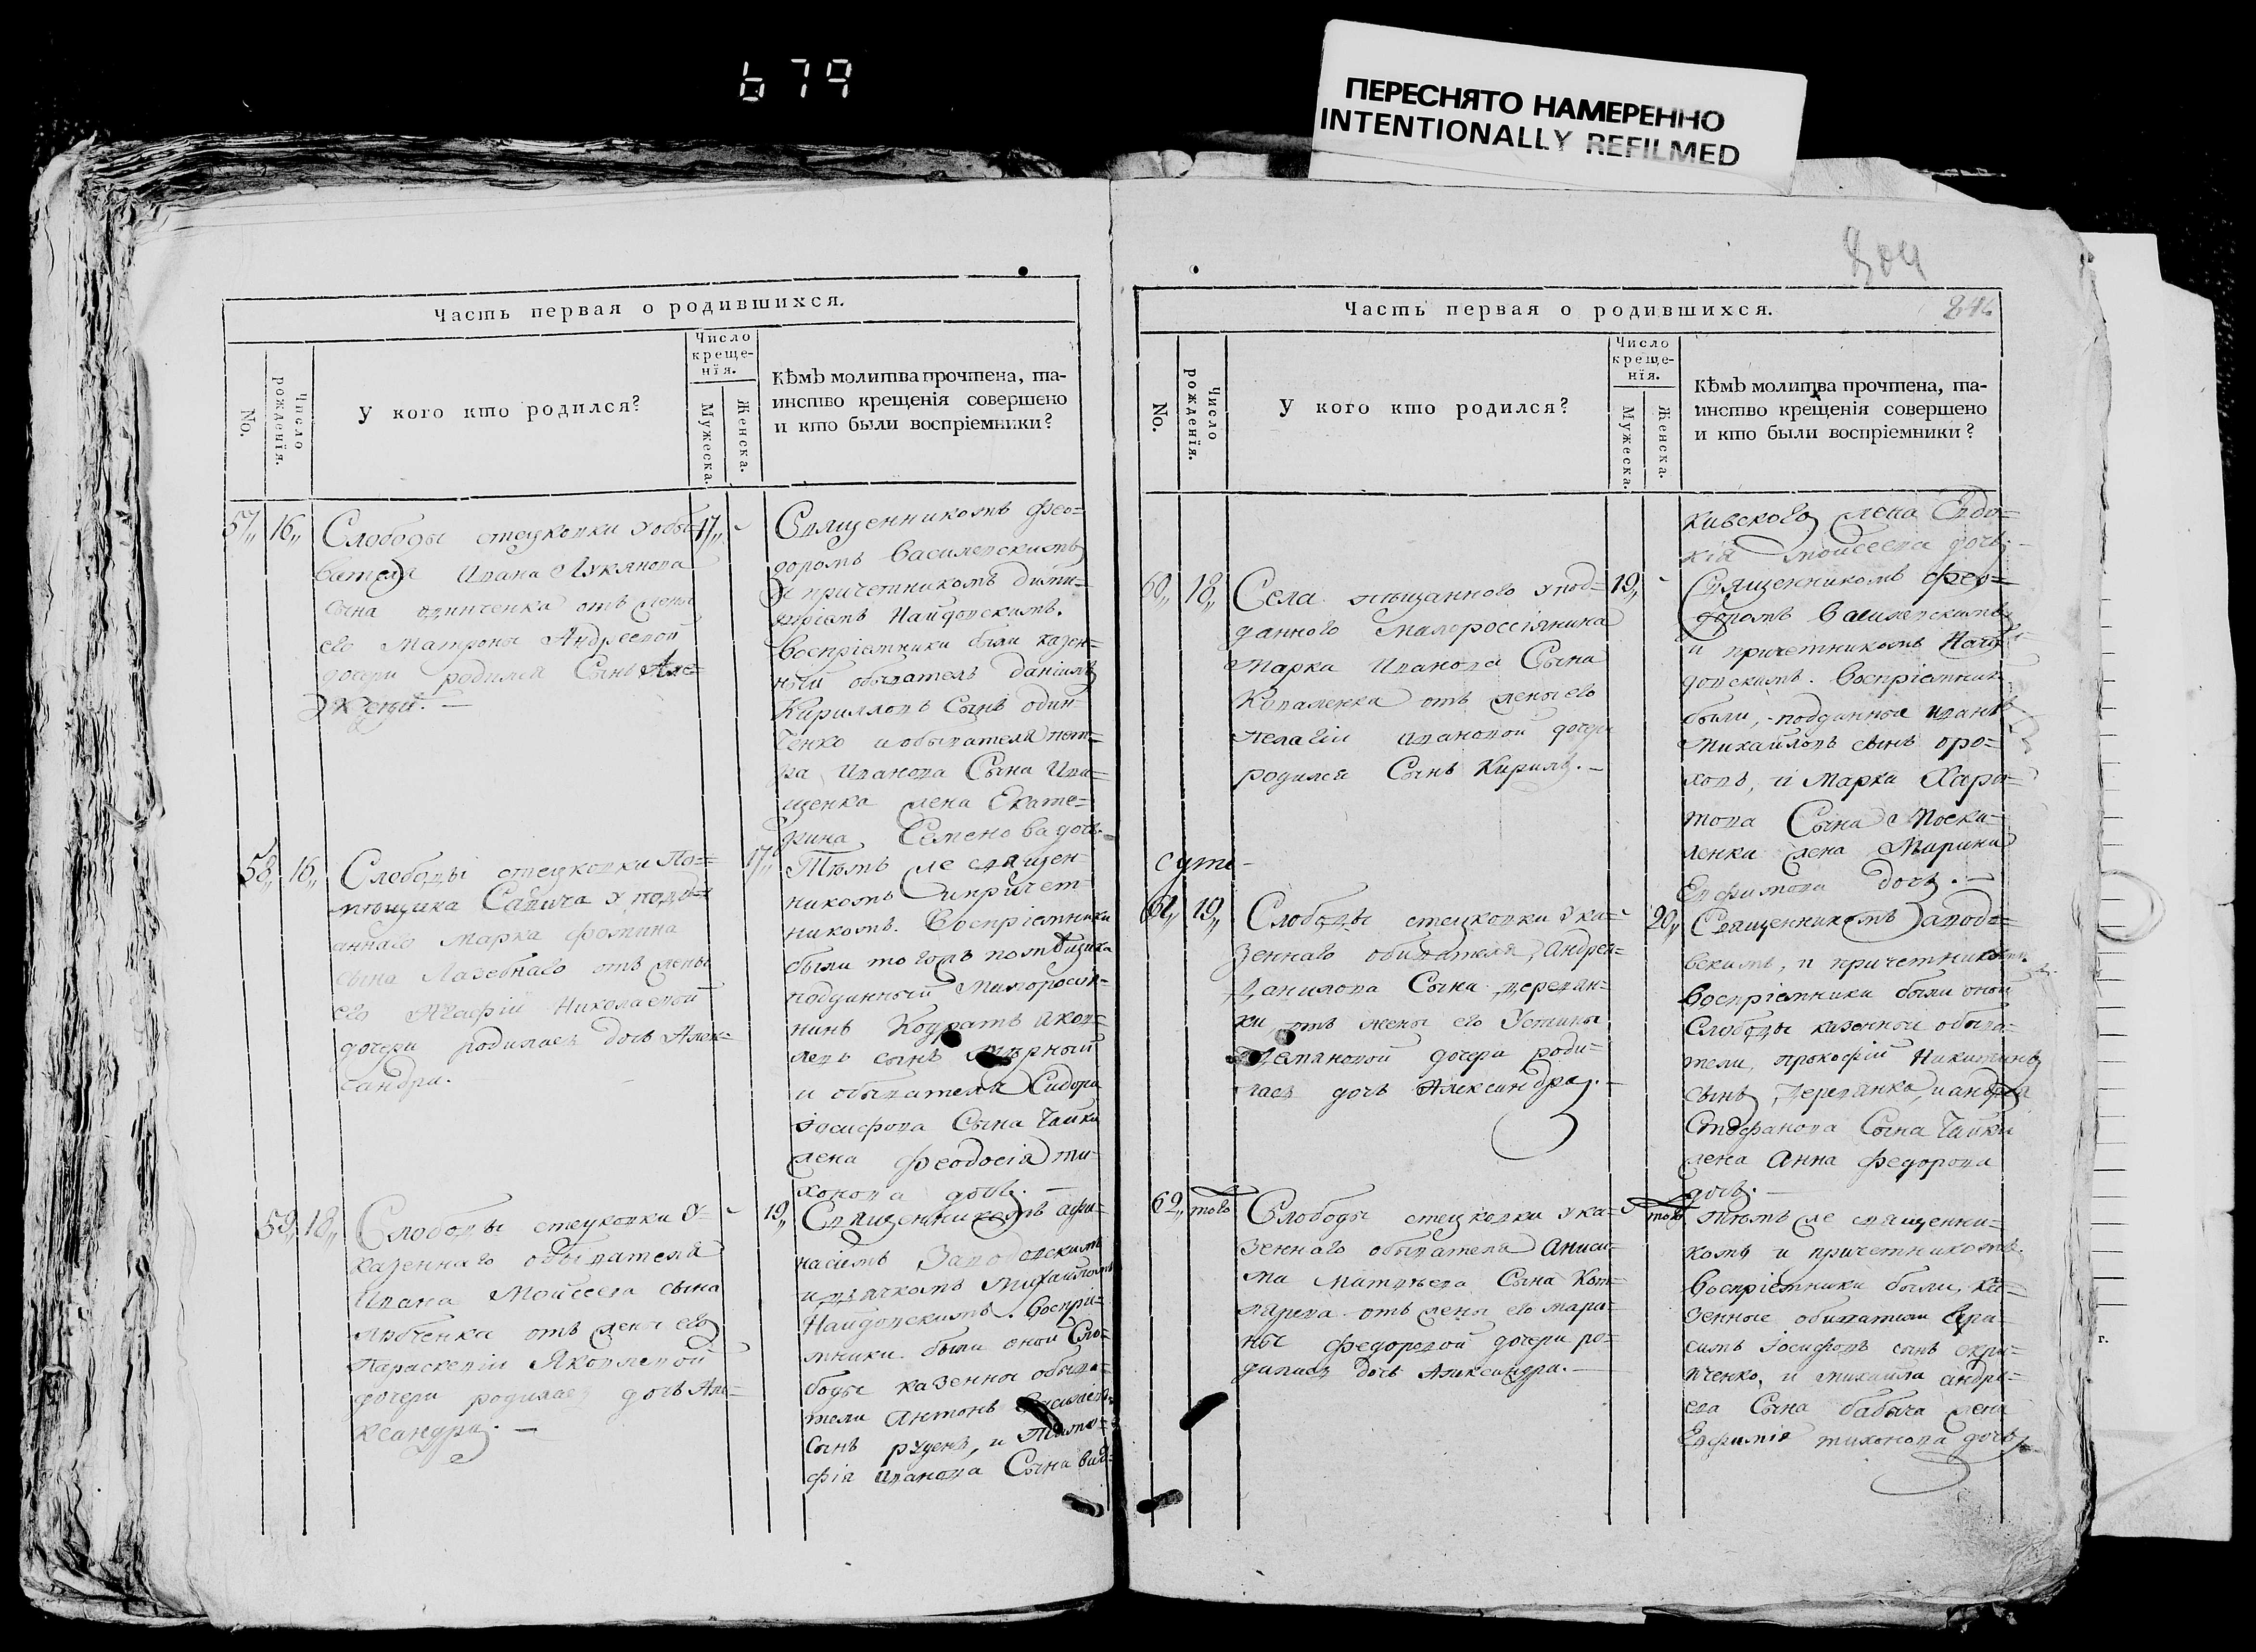 679
ПЕРЕСНЯТО НАМЕРЕННО
INTENTIONALLY REFILMED
Часть первая о родившихся.
No.
Число рожденїя.
У кого кто родился?
Число креще-
нїя.
Мужеска.
Женска.
Кѣмъ молитва прочтена, та-
инство крещенія совершено
и кто были воспріемники?
57,, 16,,
Слободы стецковки у обы-
вателя Ивана Лукянова
сына одинченка отъ жены
его Матроны Андреевой
дочери родился Сынъ Але-
ксей.
17,,
Священникомъ Фео-
доромъ Василевскимъ
и причетникомъ Дими-
тріемъ Найдовскимъ.
Воспріемники были казен-
ный обыватель Даніилъ
Кирилловъ Сынъ один-
ченко и обывателя пет-
ра Иванова Сына Ива-
щенка жена Екате-
рина Семенова дочь.
58,, 16,,
Слободы стецковки По-
мѣщика Савича у подд-
аннаго Марка Фомина
сына Лазебнаго отъ жены
его Агафіи Николаевой
дочери родилась дочь Алек-
сандра.
17,,
Тѣмъ же священ-
никомъ и причет-
никомъ. Воспріемники
были тогожъ помѣщика
подданный Малоросія-
нинъ Кодратъ Яков-
левъ сынъ
и обывателя Сидора
Іосифова Сына Чайки
жена Феодосія ти-
хонова дочь.
59,, 18,,
Слободы стецковки у
казеннаго обывателя
Ивана Моисеева сына
отъ жены его
Параскевіи Яковлевой
дочери родилась дочь Але-
ксандра.
19,,
Священникомъ афа-
насіемъ
и дьячкомъ Михаиломъ
Найдовскимъ. Воспрі-
мники были оной Сло-
боды казенны обыва-
тели Антонъ
Сынъ руденъ, и Тимо-
фія Иванова Сына
Часть первая о родившихся.
No.
Число рожденїя.
У кого кто родился?
Число креще-
нїя.
Мужеска.
Женска.
Кѣмъ молитва прочтена, та-
инство крещенія совершено
и кто были воспріемники?
жена Евдо-
кія Моисеева дочь.
60,, 18,,
Села у под-
данного Малороссіянина
Марка Иванова Сына
Коваленка отъ жены его
Пелагіи Ивановой дочери
родился Сынъ Кирилъ.
19,,
Священникомъ Фео-
доромъ Василевскимъ
и причетникомъ Най-
довскимъ. Воспріемник.
были, подданныя Иванъ
Михайловъ сынъ оро-
ховъ, и Марка Хари-
това Сына Моска-
ленка жена Марина
Евфимова дочь.
61,, 19,,
Слободы стецковки у ка-
зеннаго обывателя, Андрея
Данилова Сына деревян-
ки отъ жены его Устины
Демяновой дочери роди-
лась дочь Александра.
20,,
Священникомъ
и причетникомъ.
Воспріемники были оной
Слободы казенныи обыва-
тели, прокофій Никитинъ
сынъ, Деревянко, и андрея
Стефанова Сына Чайки
жена Анна Федорова
дочь.
62,, того
Слободы стецковки у ка-
зеннаго обывателя Аниси-
ма Матвѣева Сына Кот-
лярева отъ жены его мари-
ны Федоровой дочери ро-
дилась дочь Александра.
того
Тѣмъ же священни-
комъ и причетникомъ.
Воспріемники были, ка-
зенные обыватели Гера-
симъ Іосифовъ сынъ
и михаила андре-
ева Сына бабыча жена
Евфимія тихонова дочь